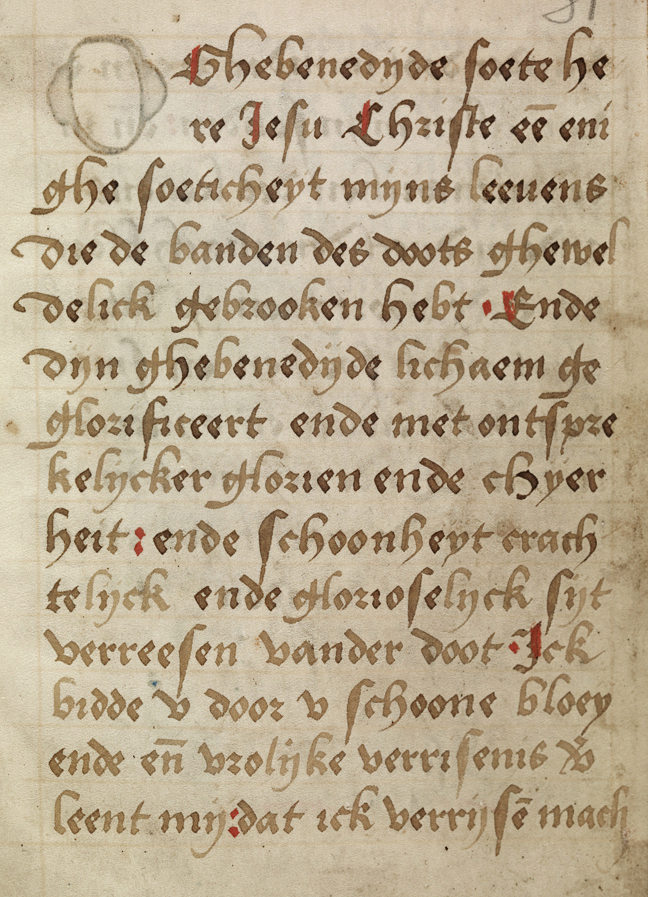 O Ghebenedijde soete he
re Jesu Christe eē eni
ghe soeticheyt mijns leeuens
die de banden des doots ghewel
delick gebrooken hebt · Ende
dijn ghebenedijde lichaem ge
glorificeert ende met ontspre
kelijcker glorien ende chyer
heit : ende schoonheyt crach
telijck ende glorioselijck sijt
verreesen vander doot · Ick
bidde v door v schoone bloey
ende eñ vrolijke verrisenis
leent mij : dat ick verrijsē mach